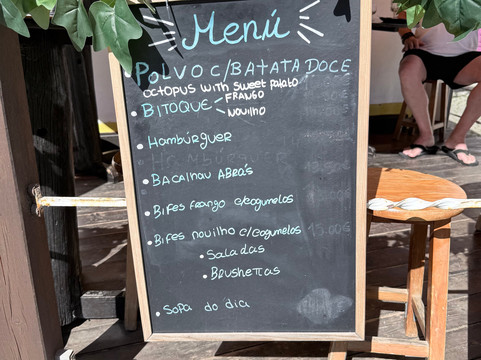 Menú
POLVO C/BATATA DOCE
OCTOPUS with Sweet potato
• BITOQUE - FRANGO
- Novilho
• Hambúrguer
• BACALHAU ABRÁS
• Bifes frango c/cogumelos
• Bifes novilho c/cogumelos 15.00€
• Saladas
• Brushettas
• Sopa do dia